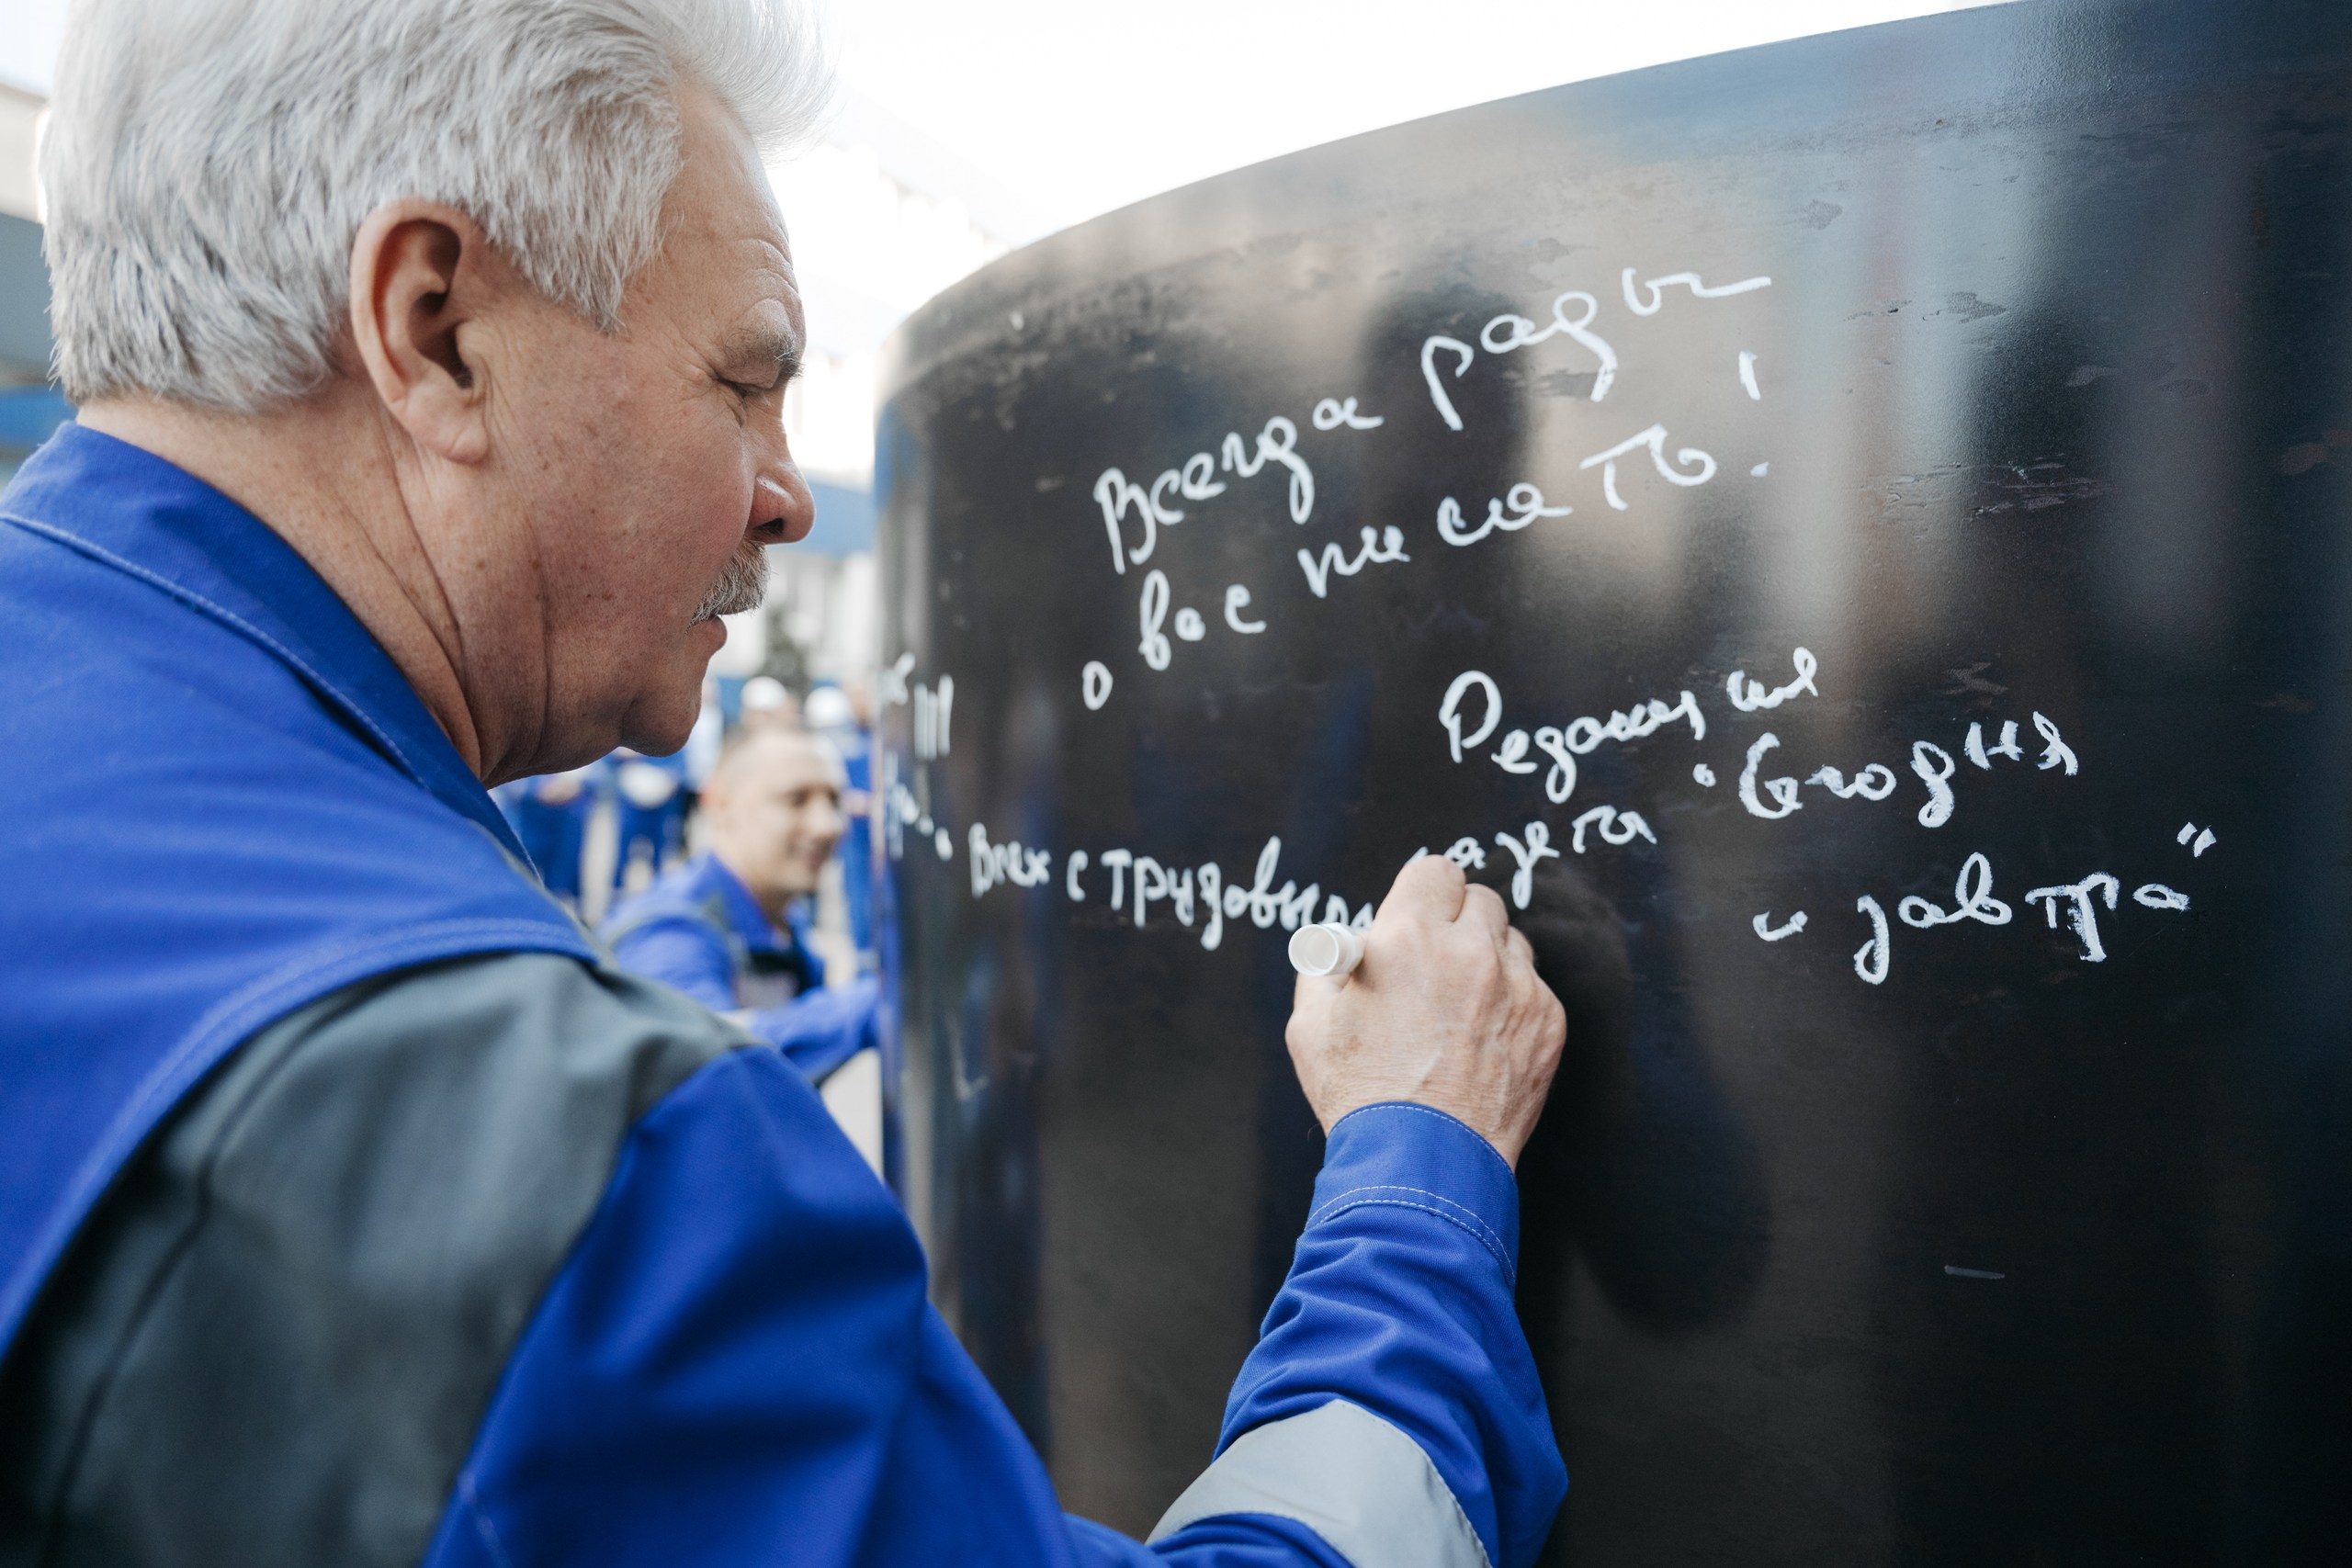 Всегда рады
о вас писать!
Редакция
газета "Сегодня
и завтра"
Всех с трудовым